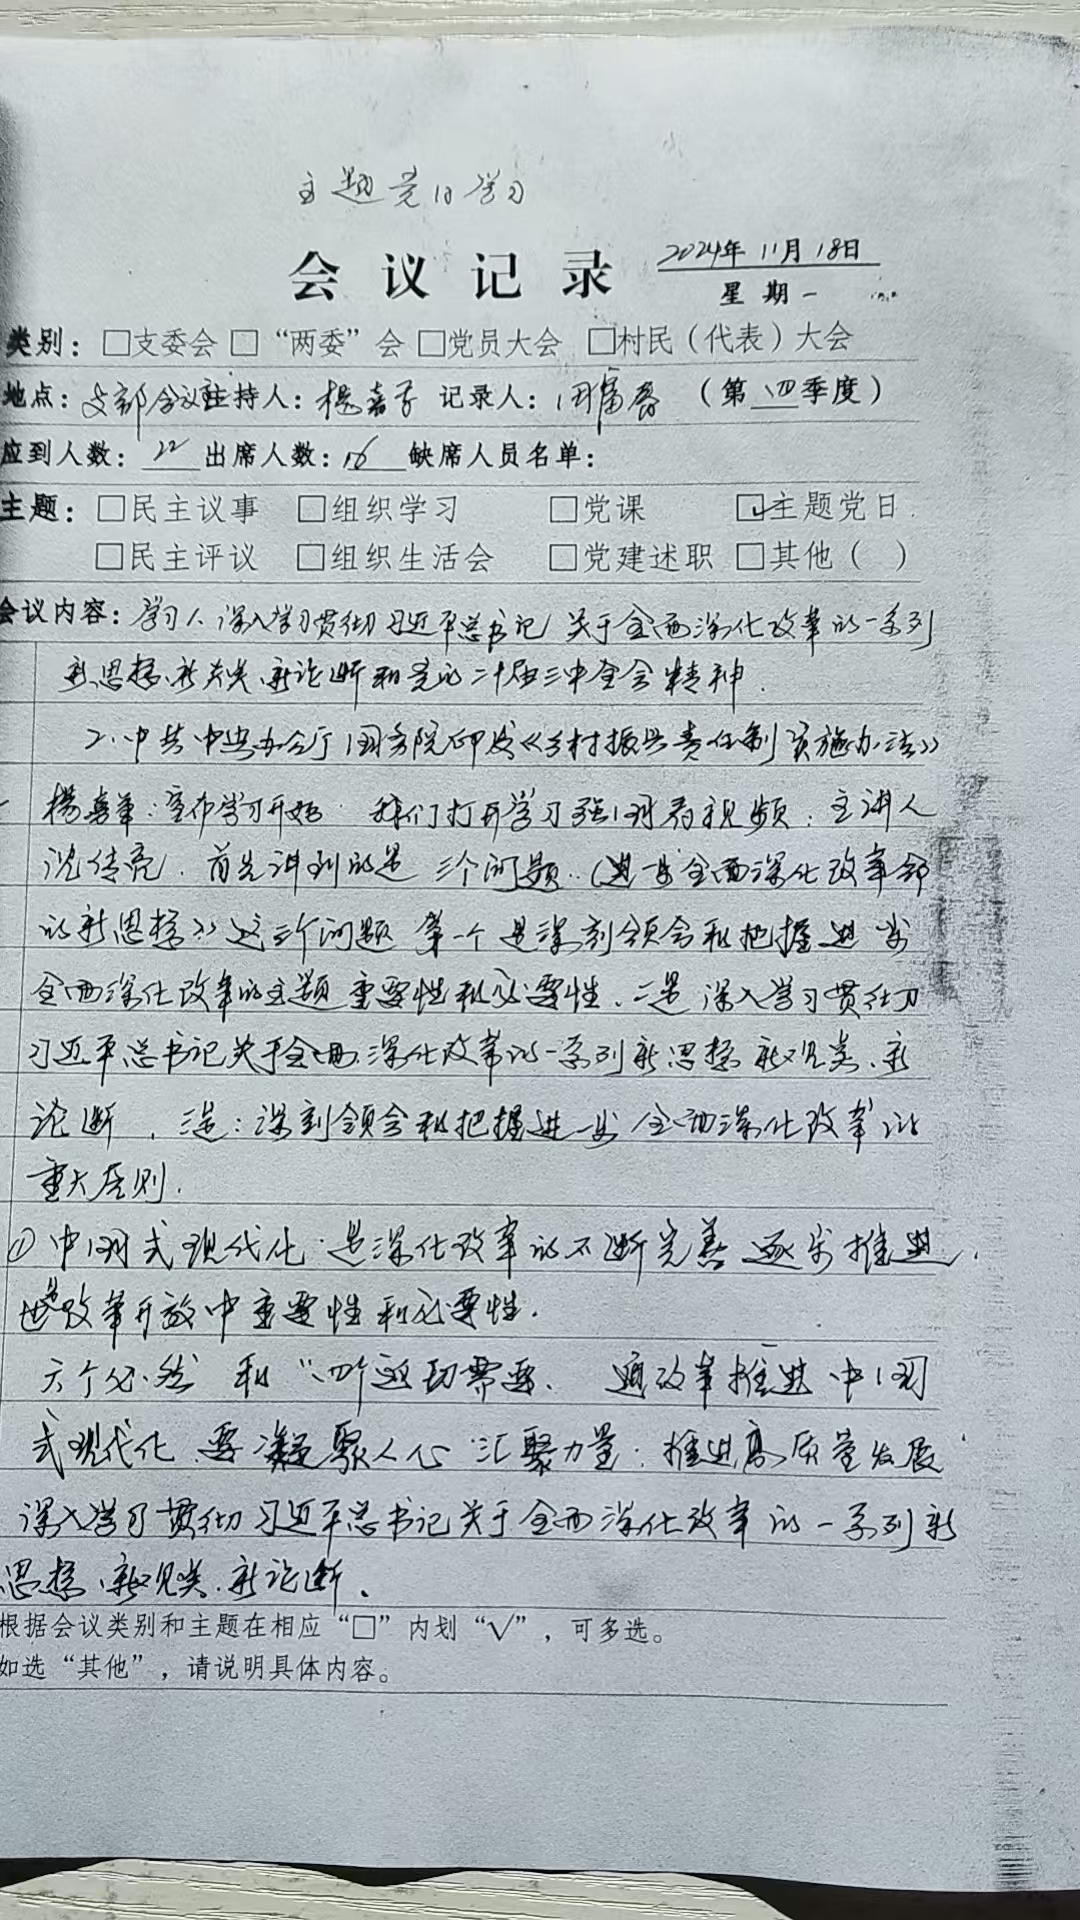 主题党日学习
会议记录
2024年11月18日
星期一
类别：□支委会 □“两委”会 □党员大会 □村民（代表）大会
地点：支部会议 主持人：杨嘉 记录人： （第四季度）
应到人数：22 出席人数：16 缺席人员名单：
主题：□民主议事 □组织学习 □党课 ☑主题党日
□民主评议 □组织生活会 □党建述职 □其他（ ）
会议内容：学习1、深入学习贯彻习近平总书记关于全面深化改革的一系列
新思想、新观点、新论断和党的二十届三中全会精神.
2.中共中央办公厅国务院印发《乡村振兴责任制实施办法》
杨嘉：宣布学习开始. 我们打开学习强国看视频：主讲人
沈传亮. 首先讲到的是三个问题.（进步全面深化改革
的新思想》这三个问题 第一个是深刻领会和把握进步
全面深化改革的主题重要性和必要性. 二是 深入学习贯彻
习近平总书记关于全面深化改革的一系列新思想 新观点、新
论断. 三是：深刻领会和把握进一步全面深化改革的
重大原则.
①中国式现代化.是深化改革的不断完善逐步推进.
改革开放中重要性和必要性.
六个必然 和“四个迫切需要. 通改革推进中国
式现代化.要凝聚人心 汇聚力量.推进高质量发展
深入学习贯彻习近平总书记关于全面深化改革的一系列新
思想、新观点、新论断.
根据会议类别和主题在相应“□”内划“√”，可多选。
如选“其他”，请说明具体内容。